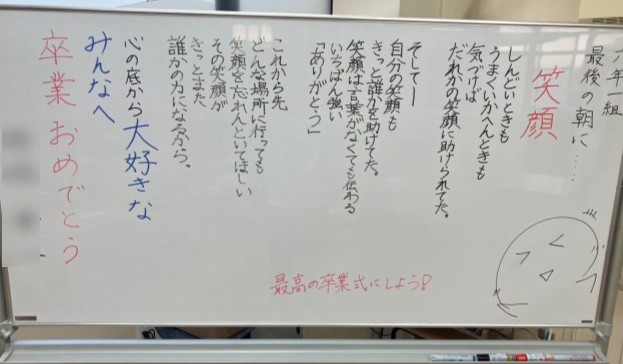 六年一組
最後の朝に……
笑顔
しんどいときも
うまくいかへんときも
気づけば
だれかの笑顔に助けられてた。
そしてー
自分の笑顔も
きっと誰かを助けてた。
笑顔は言葉がなくても伝わる
いちばん強い
「ありがとう」
これから先
どんな場所に行っても
笑顔を忘れんといてほしい
その笑顔が
きっとまた
誰かの力になるから。
心の底から大好きな
みんなへ
卒業おめでとう
最高の卒業式にしよう!